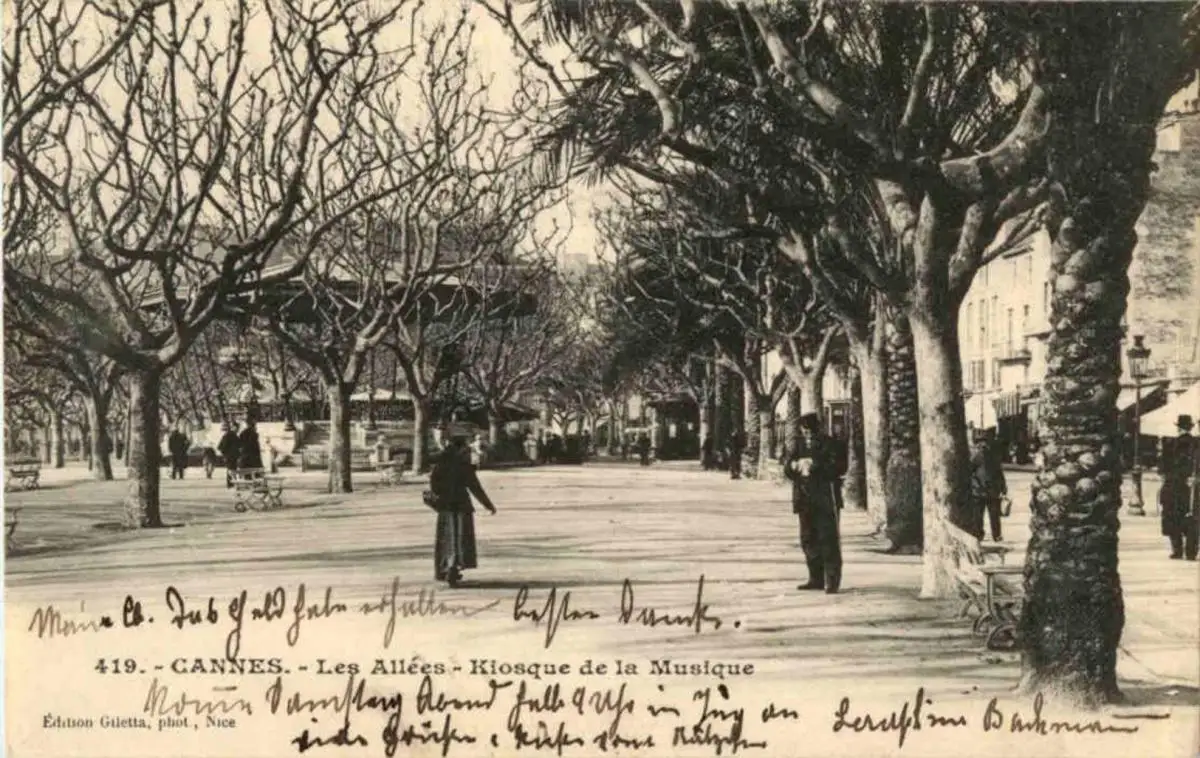 Meine lb. das Geld habe erhalten besten Dank.
419. - CANNES. - Les Allées - Kiosque de la Musique
Komme Samstag Abend halb 9 Uhr im Zug an
Édition Giletta, phot., Nice
viele Grüße & Küsse vom
Seraphine Bachmann